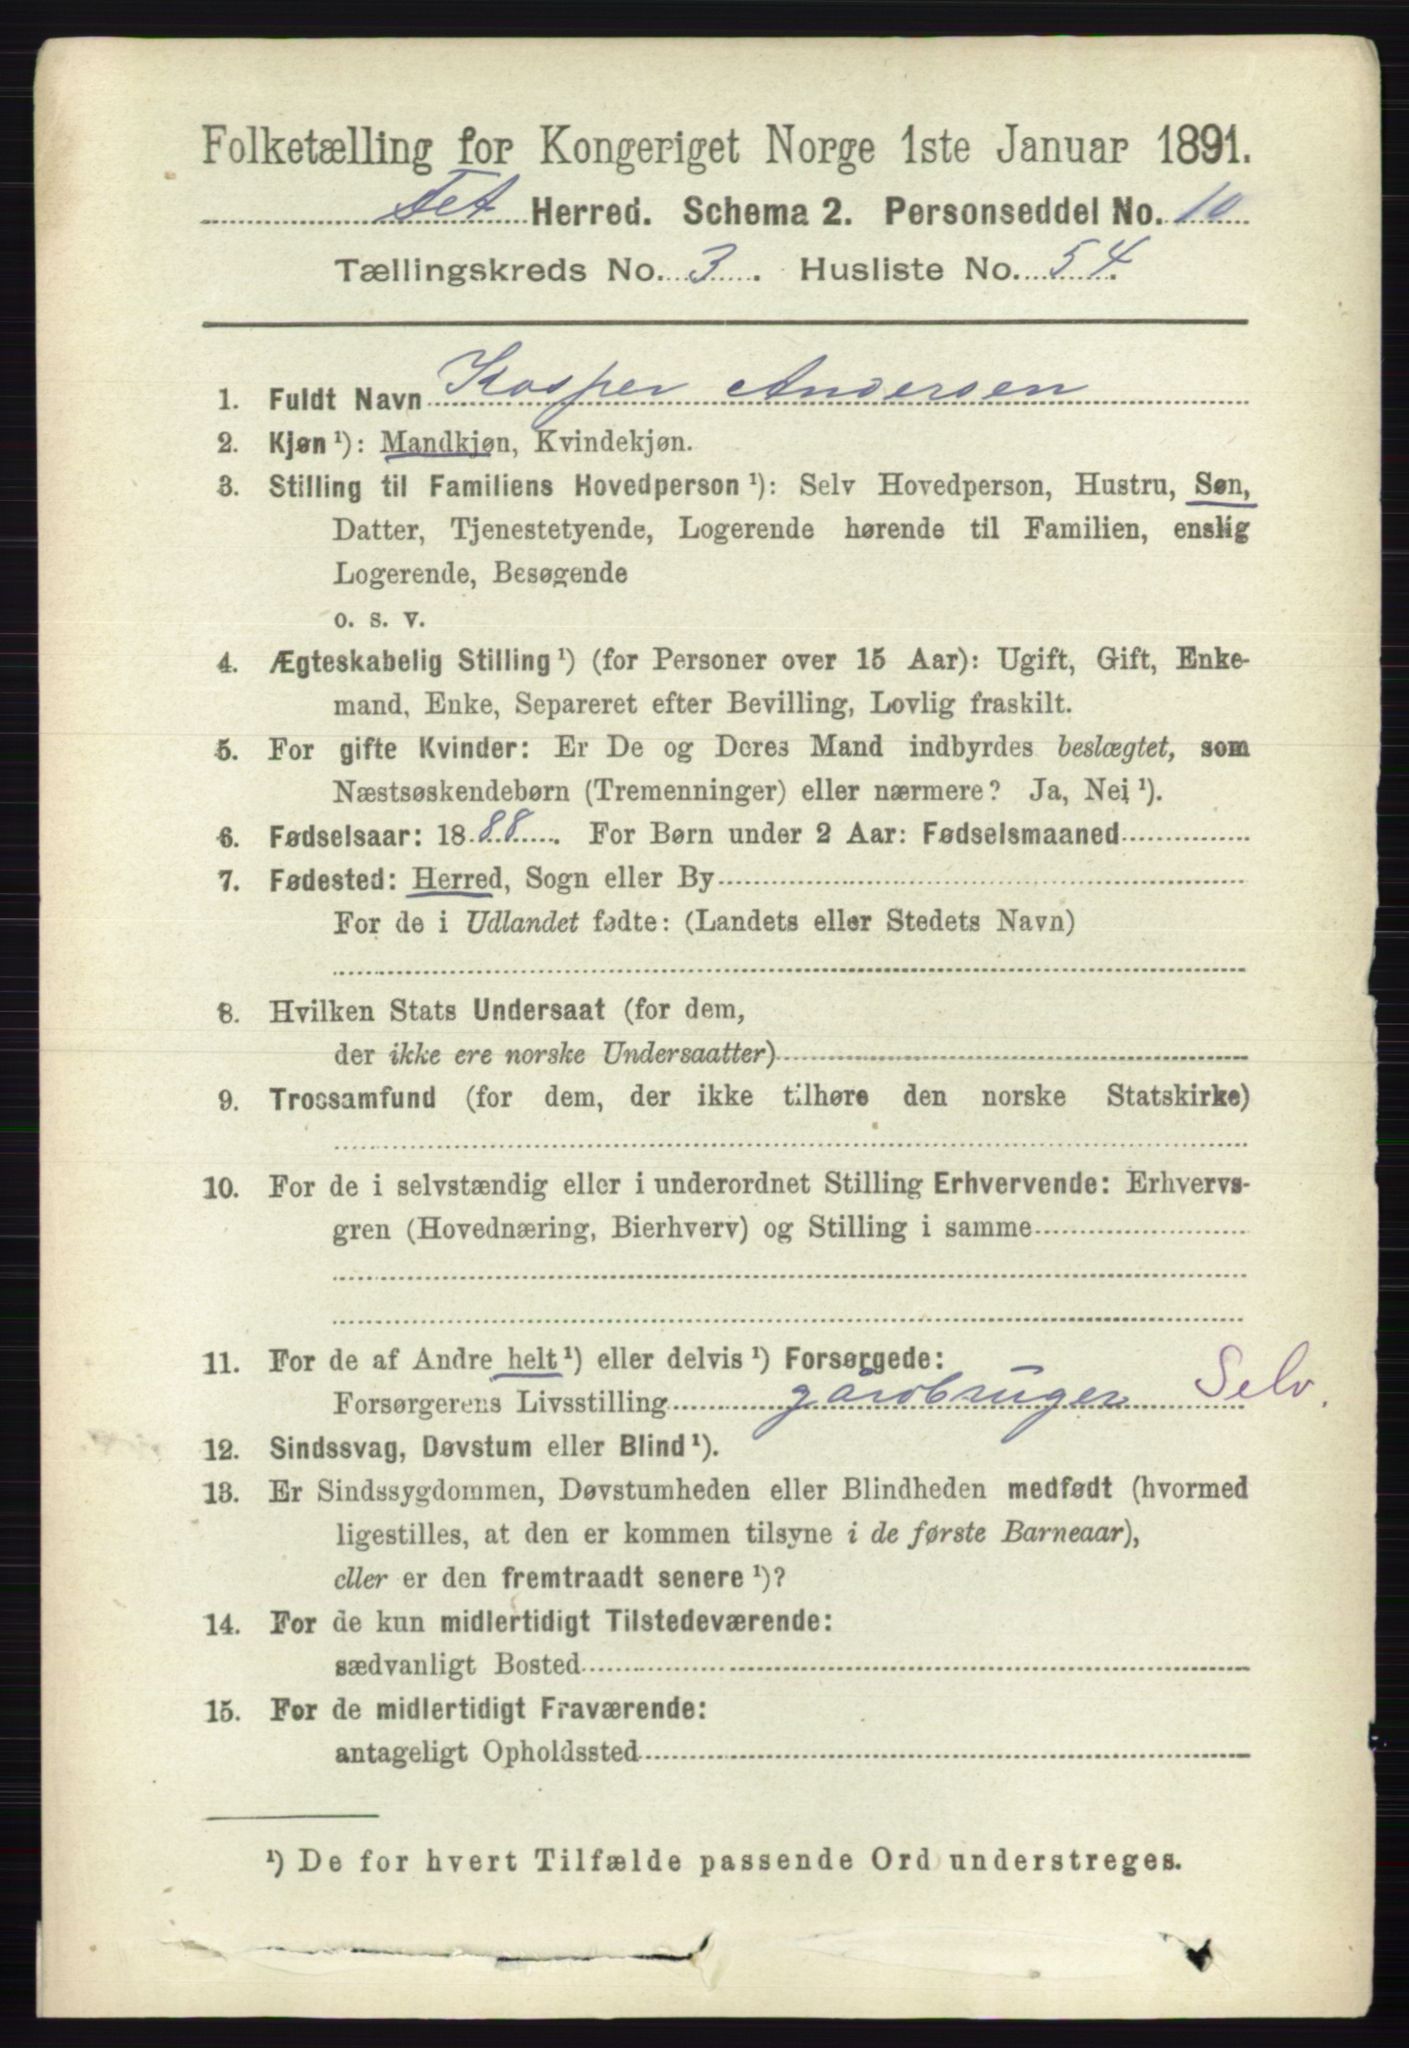 Folketælling for Kongeriget Norge 1ste Januar 1891.
Fet Herred. Schema 2. Personseddel No. 10
Tællingskreds No. 3. Husliste No. 54.
1. Fuldt Navn Kasper Andersen
2. Kjøn ¹): Mandkjøn, Kvindekjøn.
3. Stilling til Familiens Hovedperson ¹): Selv Hovedperson, Hustru, Søn,
Datter, Tjenestetyende, Logerende hørende til Familien, enslig
Logerende, Besøgende
o. s. v.
4. Ægteskabelig Stilling ¹) (for Personer over 15 Aar): Ugift, Gift, Enke-
mand, Enke, Separeret efter Bevilling, Lovlig fraskilt.
5. For gifte Kvinder: Er De og Deres Mand indbyrdes beslægtet, som
Næstsøskendebørn (Tremenninger) eller nærmere? Ja, Nei ¹).
6. Fødselsaar: 1888. For Børn under 2 Aar: Fødselsmaaned
7. Fødested: Herred, Sogn eller By
For de i Udlandet fødte: (Landets eller Stedets Navn)
8. Hvilken Stats Undersaat (for dem,
der ikke ere norske Undersaatter)
9. Trossamfund (for dem, der ikke tilhøre den norske Statskirke)
10. For de i selvstændig eller i underordnet Stilling Erhvervende: Erhvervs-
gren (Hovednæring, Bierhverv) og Stilling i samme
11. For de af Andre helt ¹) eller delvis ¹) Forsørgede:
Forsørgerens Livsstilling gårdbruger Selv.
12. Sindssvag, Døvstum eller Blind ¹).
13. Er Sindssygdommen, Døvstumheden eller Blindheden medfødt (hvormed
ligestilles, at den er kommen tilsyne i de første Barneaar),
eller er den fremtraadt senere ¹)?
14. For de kun midlertidigt Tilstedeværende:
sædvanligt Bosted
15. For de midlertidigt Fraværende:
antageligt Opholdssted
¹) De for hvert Tilfælde passende Ord understreges.